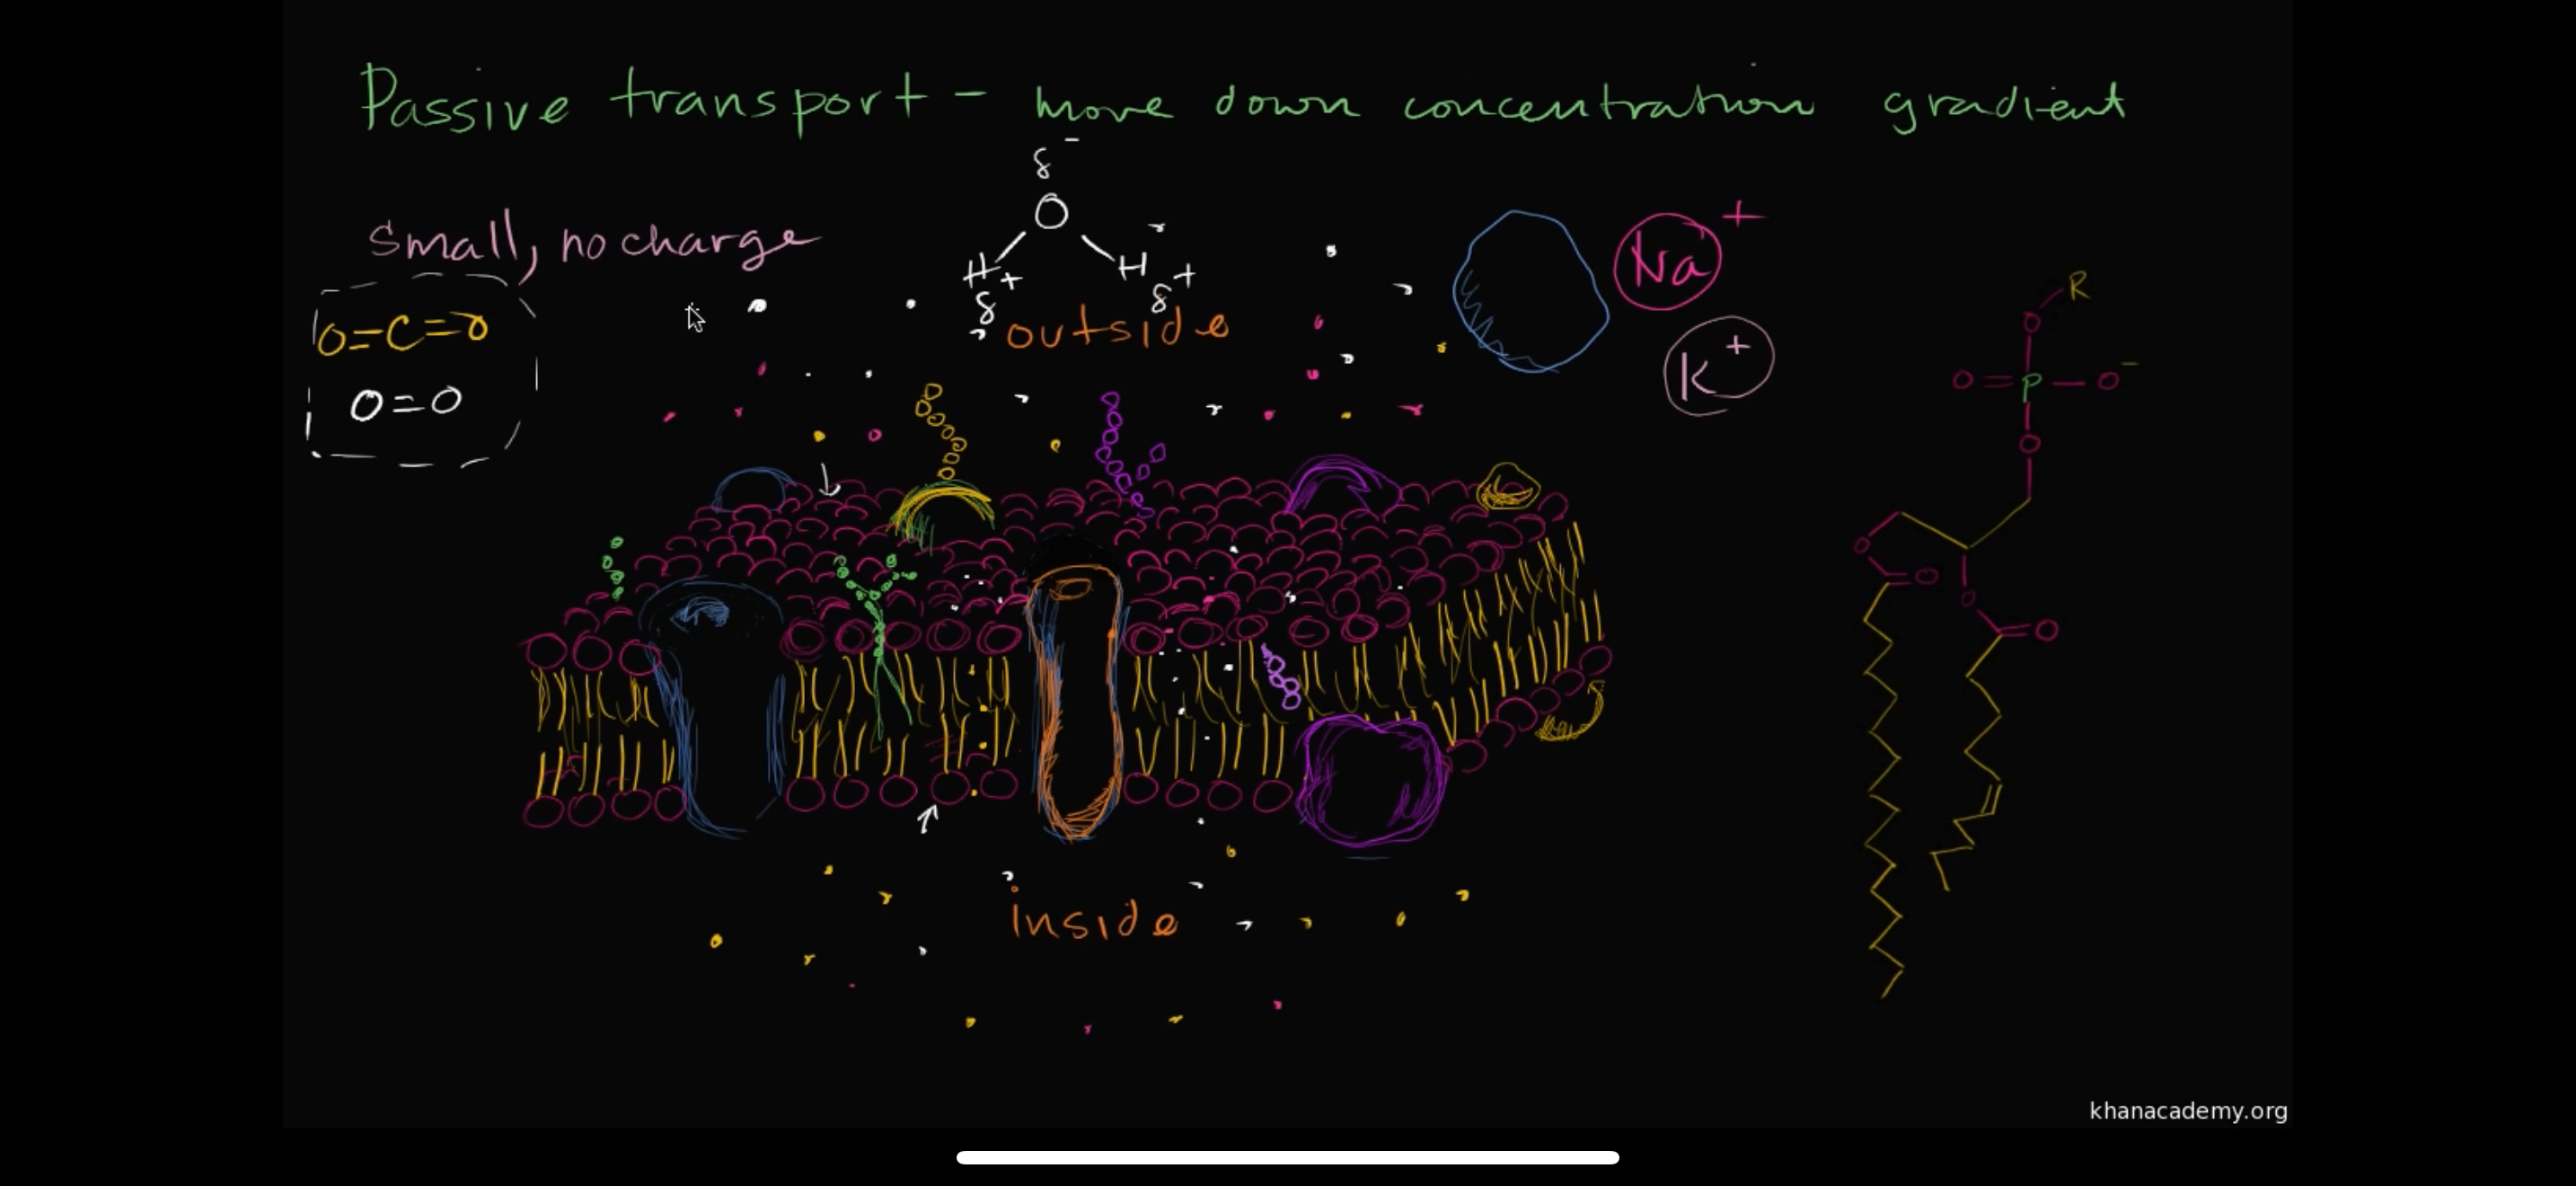 Passive transport - move down concentration gradient
δ⁻
O
H H
δ⁺ δ⁺
small, no charge
O=C=O
O=O
outside
Na⁺
K⁺
R
O
O=P-O⁻
O
O
O
O
O
inside
khanacademy.org